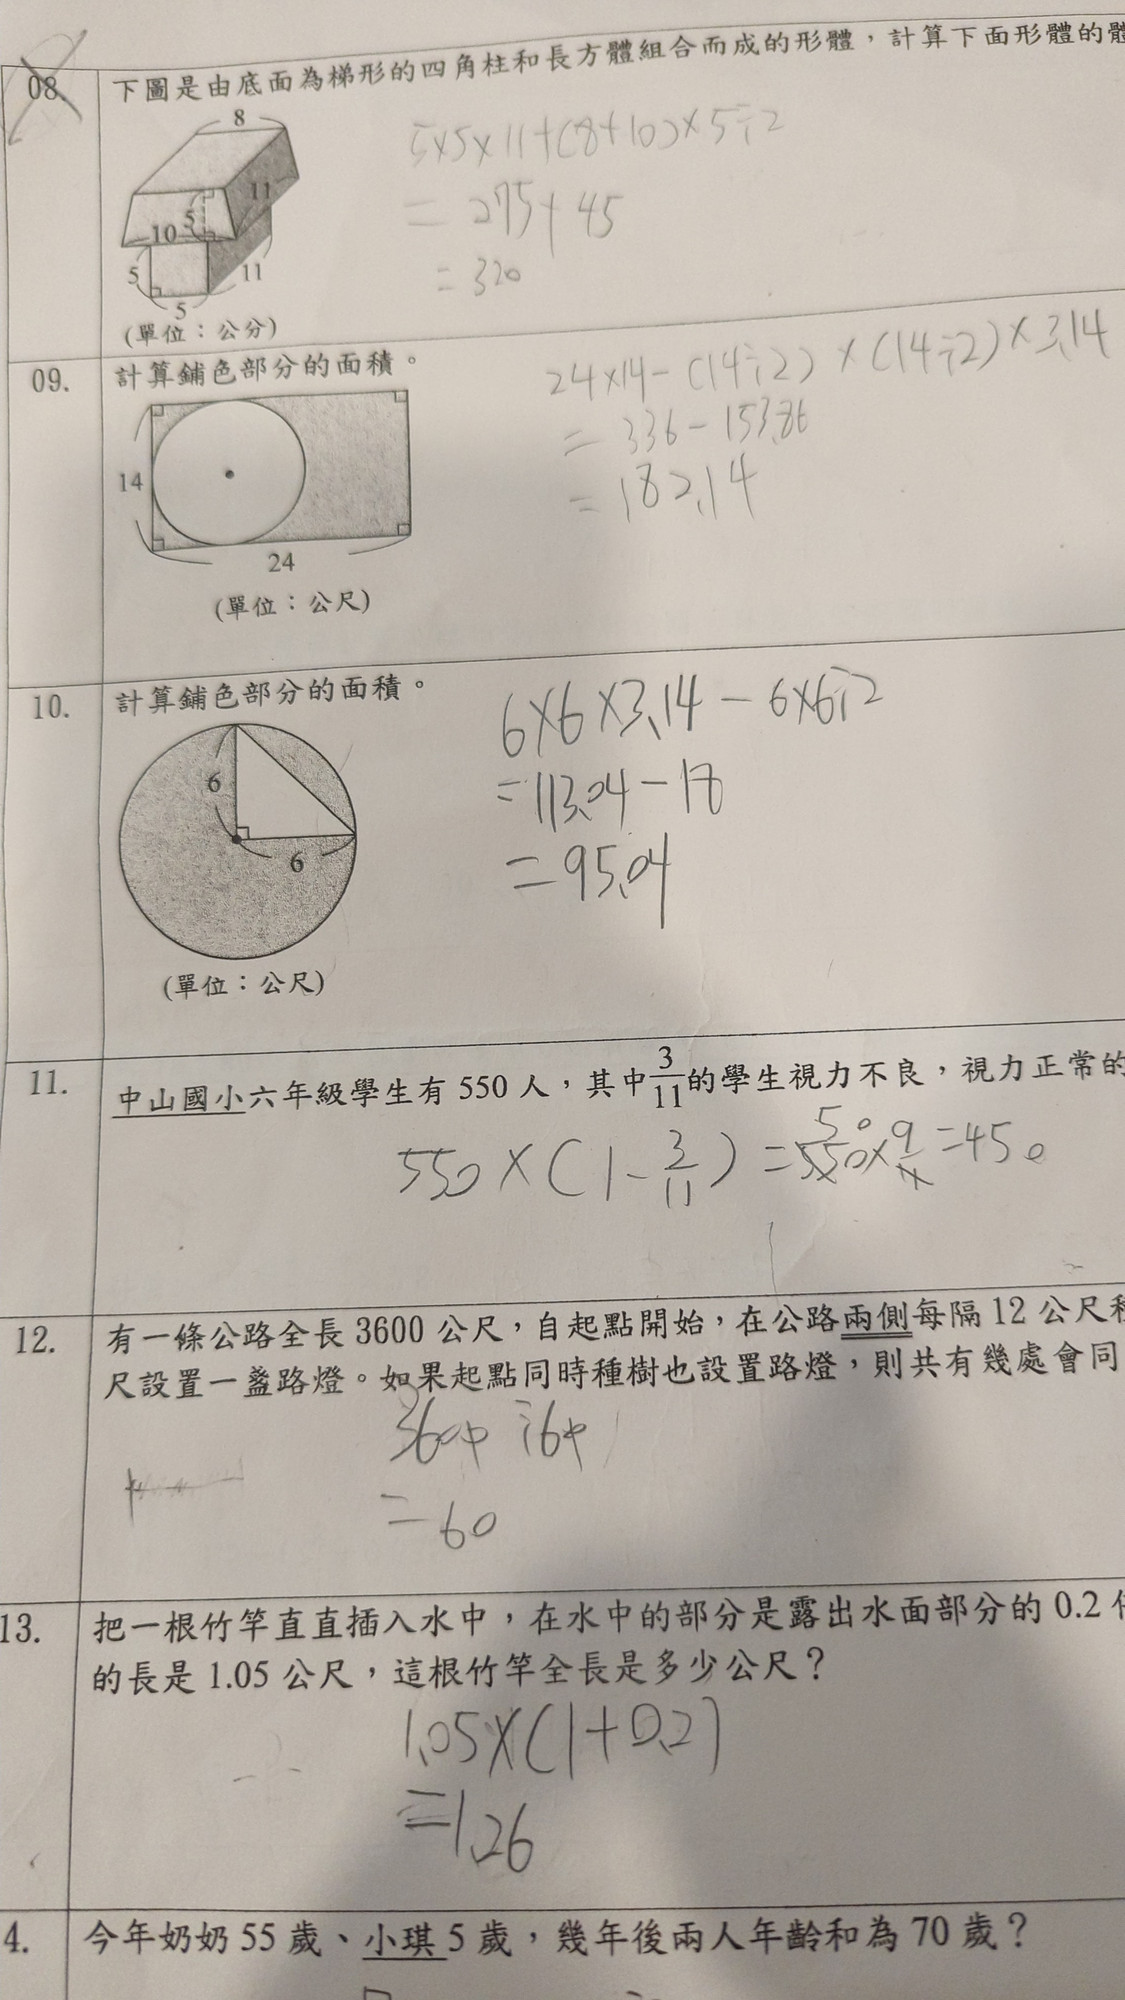 08. 下圖是由底面為梯形的四角柱和長方體組合而成的形體，計算下面形體的體
8
11
5
10
5
11
5
(單位：公分)
5×5×11+(8+10)×5÷2
= 275+45
= 320
09. 計算鋪色部分的面積。
14
24
(單位：公尺)
24×14-(14÷2)×(14÷2)×3.14
= 336-153.86
= 182.14
10. 計算鋪色部分的面積。
6
6
(單位：公尺)
6×6×3.14-6×6÷2
=113.04-18
=95.04
11. 中山國小六年級學生有 550 人，其中3/11的學生視力不良，視力正常的
550×(1-3/11)=550×9/11=450
50
12. 有一條公路全長 3600 公尺，自起點開始，在公路兩側每隔 12 公尺種
尺設置一盞路燈。如果起點同時種樹也設置路燈，則共有幾處會同
3600÷60
= 60
13. 把一根竹竿直直插入水中，在水中的部分是露出水面部分的 0.2
的長是 1.05 公尺，這根竹竿全長是多少公尺？
1.05×(1+0.2)
=1.26
4. 今年奶奶 55 歲、小琪 5 歲，幾年後兩人年齡和為 70 歲？